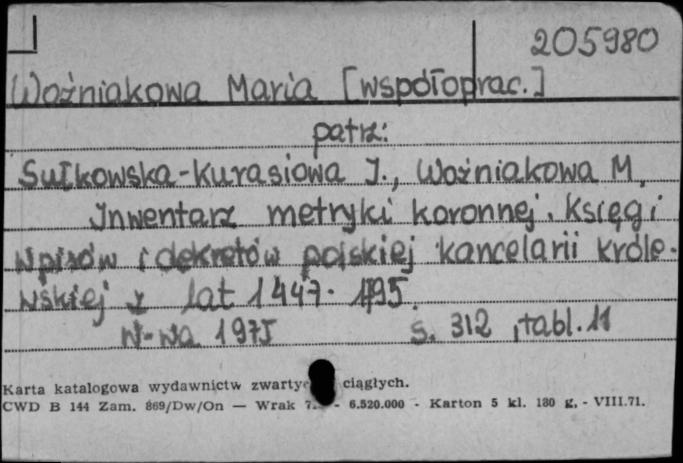 205980
Woźniakowa Maria [współoprac.]
patrz:
Sułkowska-Kurasiowa I., Woźniakowa M,
Inwentarz metryki koronnej. Księgi
wpisów i dekretów polskiej kancelarii króle-
wskiej z lat 1447-1795.
W-wa 1975 s. 312, tabl. 11
Karta katalogowa wydawnictw ciągłych.
CWD B 144 Zam. 869/Dw/On — Wrak - 6.520.000 - Karton 5 kl. 180 g. - VIII.71.